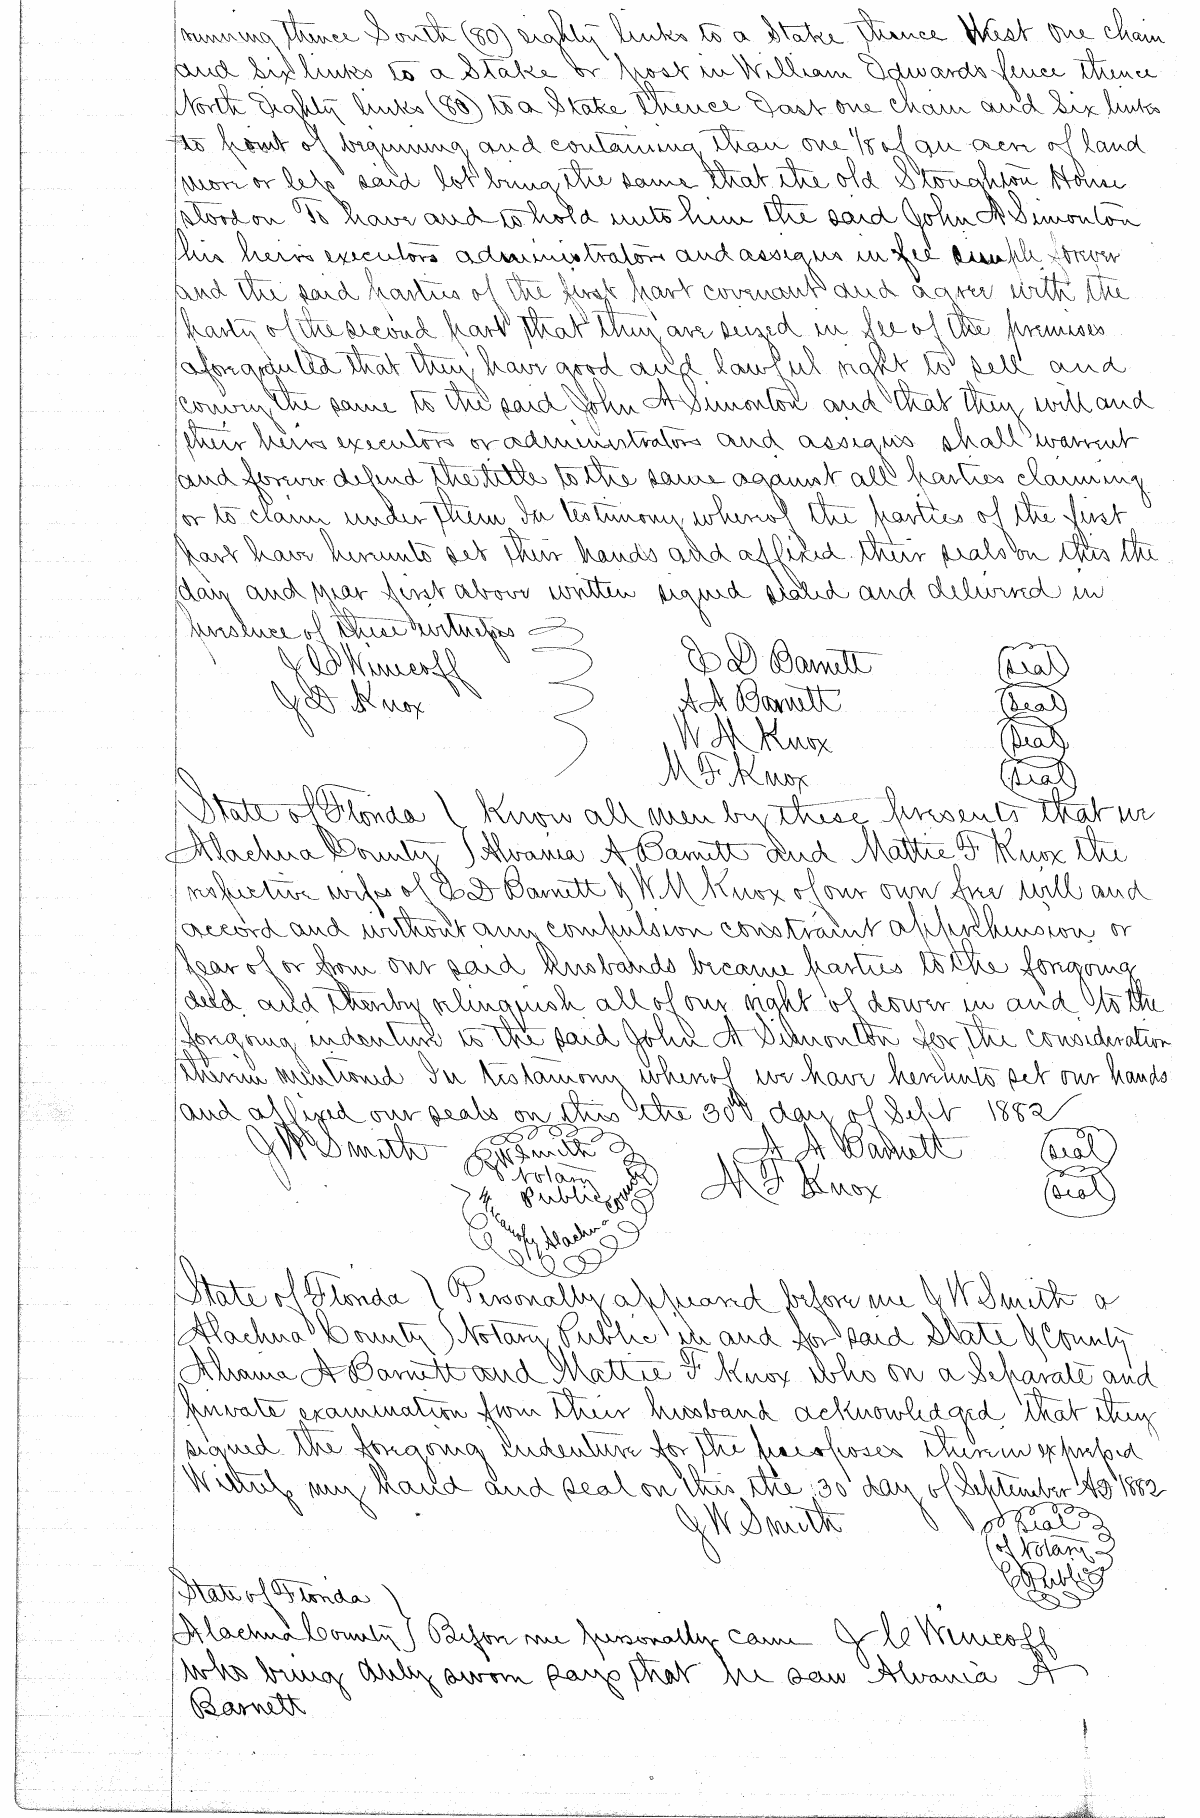 running thence South (80) eighty links to a Stake thence West one chain
and Six links to a Stake or post in William Edwards fence thence
North Eighty links (80) to a Stake thence East one chain and Six links
to point of beginning and containing than one 1/8 of an acre of land
more or less said lot being the same that the old Stoughton House
stood on To have and to hold unto him the said John A Simonton
his heirs executors administrators and assigns in fee simple forever
and the said parties of the first part covenant and agree with the
party of the second part that they are seized in fee of the premises
aforegranted that they have good and lawful right to sell and
convey the same to the said John A Simonton and that they will and
their heirs executors or administrators and assigns shall warrent
and forever defend the title to the same against all parties claiming
or to claim under them In testimony whereof the parties of the first
part have hereunto set their hands and affixed their seals on this the
day and year first above written signed sealed and delivered in
presence of these witness
J C Winecoff E D Barnett (seal)
J D Knox A A Barnett (seal)
W M Knox (seal)
M F Knox (seal)
State of Florida ) Know all men by these presents that we
Alachua County ) Alvania A Barnett and Mattie F Knox the
respective wifes of E D Barnett & W M Knox of our own free will and
accord and without any compulsion constraint apprehension or
fear of or from our said husbands became parties to the foregoing
deed and thereby relinquish all of our right of dower in and to the
foregoing indenture to the said John A Simonton for the consideration
therein mentioned In testamony whereof we have hereunto set our hands
and affixed our seals on this the 30th day of Sept 1882
J W Smith J W Smith Notary Public Micanopy Alachua County A A Barnett (seal)
M F Knox (seal)
State of Florida ) Personally appeared before me J W Smith a
Alachua County ) Notary Public in and for said State & County
Alvania A Barnett and Mattie F Knox who on a Separate and
private examination from their husband acknowledged that they
signed the foregoing indenture for the purposes therein expressed
Witness my hand and seal on this the 30 day of September AD 1882
J W Smith Seal of Notary Public
State of Florida )
Alachua County ) Before me personally came J C Winecoff
who being duly sworn says that he saw Alvania A
Barnett